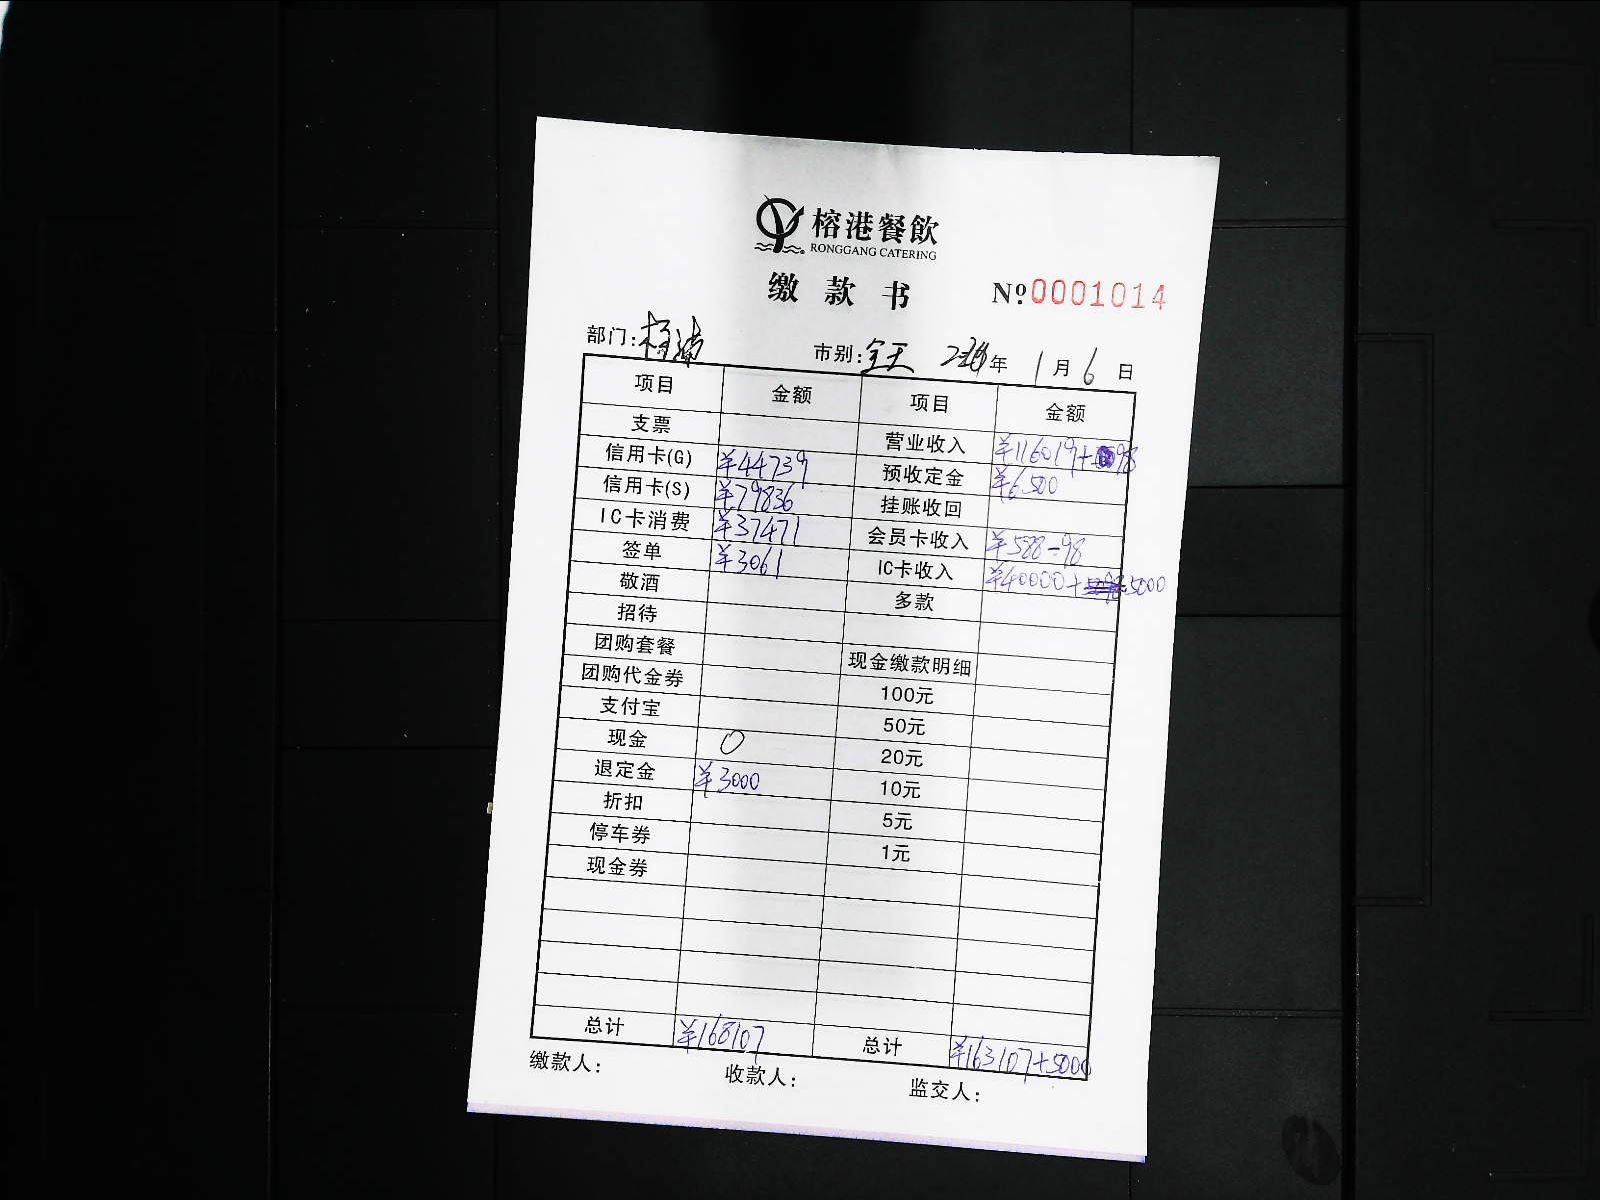 榕港餐飲
RONGGANG CATERING
缴款书
Nº0001014
部门: 市别:全天 年 1月6日
项目 金额 项目 金额
支票 营业收入 ¥116019+98
信用卡(G) ¥44739 预收定金 ¥6500
信用卡(S) ¥79836 挂账收回
IC卡消费 ¥37471 会员卡收入 ¥588-98
签单 ¥3061 IC卡收入 ¥40000+5000
敬酒 多款
招待
团购套餐 现金缴款明细
团购代金券 100元
支付宝 50元
现金 0 20元
退定金 ¥3000 10元
折扣 5元
停车券 1元
现金券
总计 ¥168107 总计 ¥163107+5000
缴款人: 收款人: 监交人: